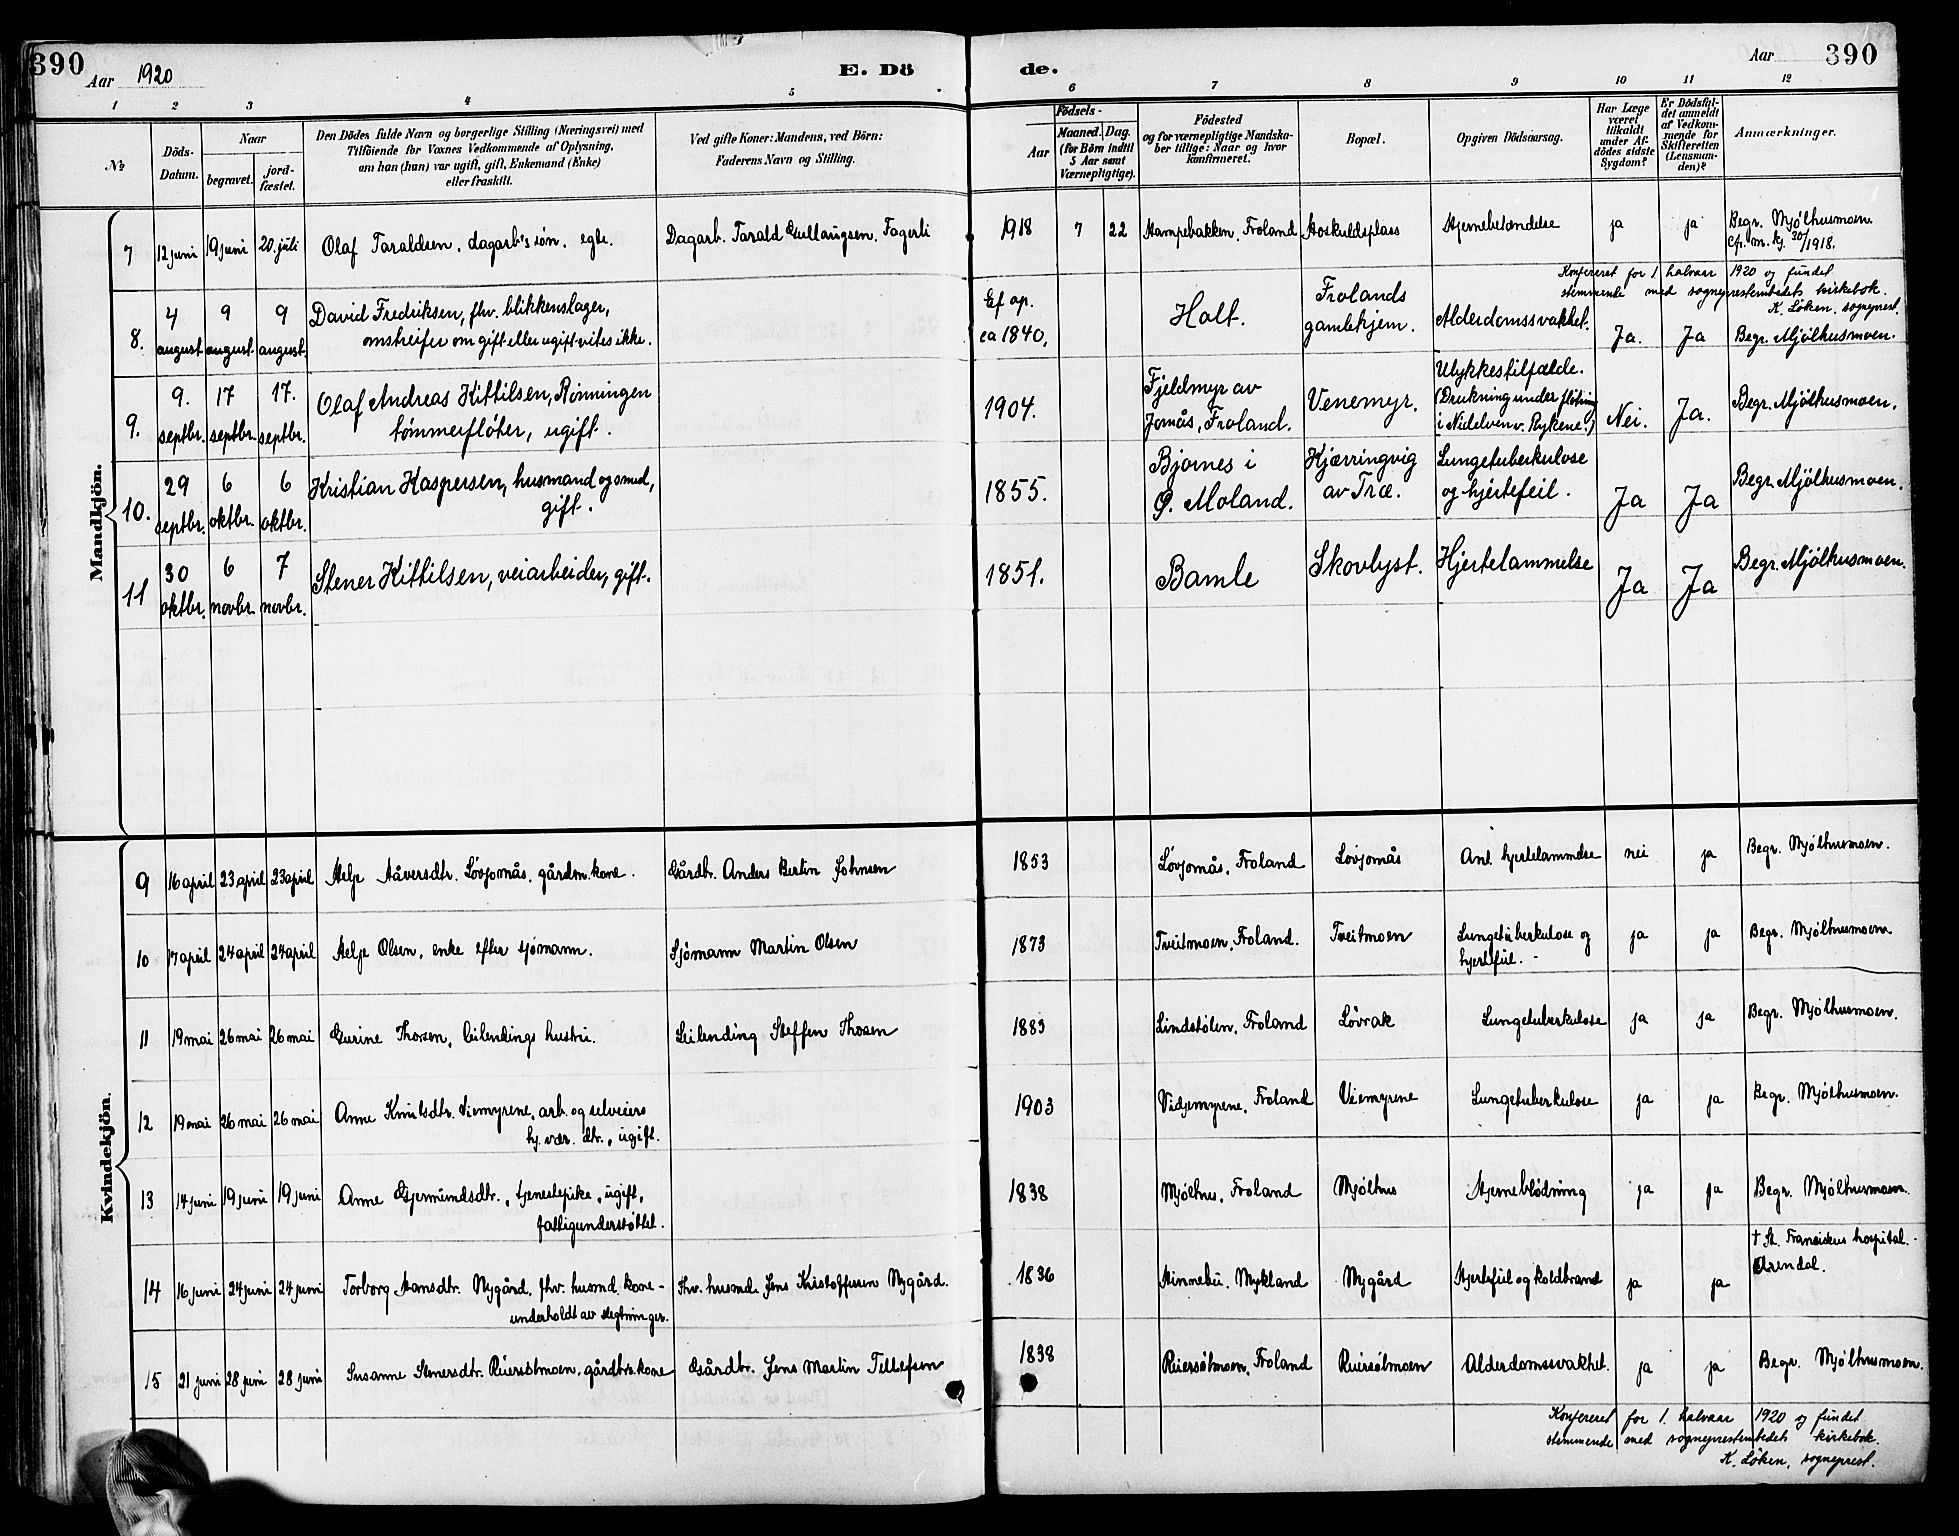 390
Aar 1920
E. Dö
de.
Aar
390
1 2 3 4 5 6 7 8 9 10 11 12
No
Döds-Datum.
Naar
begravet.
jord-fæstet.
Den Dödes fulde Navn og borgerlige Stilling (Næringsvei) med
Tilföiende for Voxnes Vedkommende af Oplysning,
om han (hun) var ugift, gift, Enkemand (Enke)
eller fraskilt.
Ved gifte Koner: Mandens, ved Börn:
Faderens Navn og Stilling.
Födsels-
Aar
Maaned. Dag.
(for Börn indtil
5 Aar samt
Værnepligtige).
Födested
og for værnepligtige Mandska-
ber tillige: Naar og hvor
konfirmeret.
Bopæl.
Opgiven Dödsaarsag.
Har Læge
været
tilkaldt
under Af-
dödes sidste
Sygdom?
Er Dödsfal-
det anmeldt
af Vedkom-
mende for
Skifteretten
(Lensman-
den)?
Anmærkninger.
Mandkjön.
7 12 juni 19 juni 20. juli Olaf Taraldsen, dagarb's søn. egte. Dagarb. Tarald Gullaugsen. Fagerli 1918 7 22 Stampebakken, Froland Hoskuldsplass Hjernebetændelse ja ja Begr. Mjølhusmoen.
Cfr. m. kj. 30/1918.
Konfereret for 1 halvaar 1920 og fundet
stemmende med sogneprestembedets kirkebok.
K. Løken, sogneprest.
8. 4 august 9 august 9 august. David Fredriksen, fhv. blikkenslager,
omstreifer om gift eller ugift vites ikke. Ef op.
ca 1840. Holt. Frolands
gamlehjem. Alderdomssvakhet. Ja. Ja Begr. Mjölhusmoen.
9. 9. septbr. 17 septbr. 17. septbr. Olaf Andreas Kittilsen, Rønningen
tømmerfløter, ugift. 1904. Fjeldmyr av
Jomås, Froland. Venemyr. Ulykkestilfælde.
(Drukning under fløtning
i Nidelven v. Rykene.) Nei. Ja. Begr. Mjölhusmoen.
10. 29 septbr. 6 oktbr. 6 oktbr. Kristian Kaspersen, husmand og smed,
gift. 1855. Bjornes i
Ø. Moland. Kjærringvig
av Træ. Lungetuberkulose
og hjertefeil. Ja Ja Begr. Mjölhusmoen.
11 30 oktbr. 6 novbr. 7 novbr. Stener Kittilsen, veiarbeider, gift. 1851. Bamle Skovlyst. Hjertelammelse Ja Ja Begr. Mjölhusmoen.
Kvindekjön.
9 16 april 23 april 23 april Helje Håversdtr. Løvjomås, gårdm. kone. Gårdbr. Anders Bertin Johnsen 1853 Løvjomås, Froland Løvjomås Ant. hjertelammelse nei ja Begr. Mjølhusmoen.
10 17 april 24 april 24 april Helje Olsen, enke efter sjømann. Sjømann Martin Olsen 1873 Tveitmoen, Froland. Tveitmoen Lungetuberkulose og
hjertefeil. ja ja Begr. Mjølhusmoen
11 19 mai 26 mai 26 mai Gurine Thorsen, leilendings hustru. Leilending Steffen Thosen 1883 Lindstølen, Froland Løvrak Lungetuberkulose ja ja Begr. Mjølhusmoen.
12 19 mai 26 mai 26 mai Anne Knutsdtr. Viemyrene, arb. og selveiers
hj. vær. dtr., ugift. 1903 Vidjemyrene, Froland Viemyrene Lungetuberkulose ja ja Begr. Mjølhusmoen.
13 14 juni 19 juni 19 juni Anne Gjermundsdtr., tjenestepike, ugift,
fattigunderstøttet. 1838 Mjølhus, Froland Mjølhus Hjerneblødning ja ja Begr. Mjølhusmoen.
14 16 juni 24 juni 24 juni Torborg Hansdtr. Nygård, fhv. husmd. kone -
underholdt av slegtninger. Fhv. husmd. Jens Kristoffersen Nygård. 1836 Hinnebu, Mykland Nygård Hjertefeil og koldbrand ja ja † St. Franciskus hospital.
Arendal.
15 21 juni 28 juni 28 juni Susanne Stenersdtr. Reiersølmoen, gårdbr's kone Gårdbr. Jens Martin Tellefsen 1838 Reiersølmoen, Froland Reiersølmoen Alderdomssvakhet. ja ja Begr. Mjølhusmoen.
Konfereret for 1. halvaar 1920 og fundet
stemmende med sogneprestembedets kirkebok.
K. Løken, sogneprest.